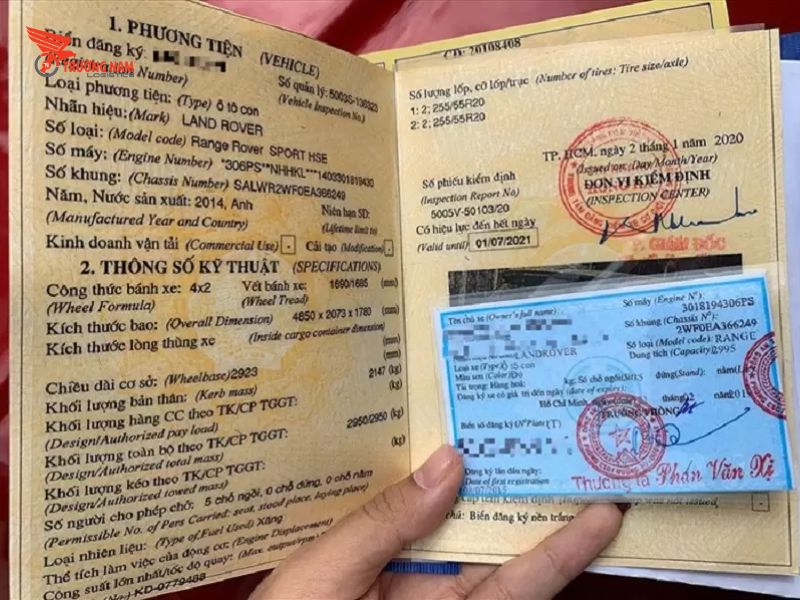 TRƯỜNG NAM
LOGISTICS
1. PHƯƠNG TIỆN (VEHICLE)
Biển đăng ký:
Number)
Số quản lý: 5003S-136323
(Vehicle Inspection No.)
Loại phương tiện: (Type) ô tô con
Nhãn hiệu: (Mark) LAND ROVER
Số loại: (Model code) Range Rover SPORT HSE
Số máy: (Engine Number) *306PS**NHHKL***1403301819430
Số khung: (Chassis Number) SALWR2WF0EA366249
Năm, Nước sản xuất: 2014, Anh
Niên hạn SD:
(Manufactured Year and Country)
(Lifetime limit to)
Kinh doanh vận tải (Commercial Use) - Cải tạo (Modification) -
2. THÔNG SỐ KỸ THUẬT (SPECIFICATIONS)
Công thức bánh xe: 4x2 Vết bánh xe: 1690/1685 (mm)
(Wheel Formula) (Wheel Tread)
Kích thước bao: (Overall Dimension) 4850 x 2073 x 1780 (mm)
Kích thước lòng thùng xe (Inside cargo container dimension)
(mm)
Chiều dài cơ sở: (Wheelbase) 2923 (mm)
Khối lượng bản thân: (Kerb mass) 2147 (kg)
Khối lượng hàng CC theo TK/CP TGGT: (kg)
(Design/Authorized pay load)
Khối lượng toàn bộ theo TK/CP TGGT: 2950/2950 (kg)
(Design/Authorized total mass)
Khối lượng kéo theo TK/CP TGGT: (kg)
(Design/Authorized towed mass)
Số người cho phép chở: 5 chỗ ngồi, 0 chỗ đứng, 0 chỗ nằm
(Permissible No. of Pers Carried: seat, stood place, laying place)
Loại nhiên liệu: (Type of Fuel Used) Xăng
Thể tích làm việc của động cơ: (Engine Displacement)
Công suất lớn nhất/tốc độ quay: (Max. output/rpm)
KD-0779468
CD: 20108408
Số lượng lốp, cỡ lốp/trục (Number of tires: Tire size/axle)
1: 2; 255/55R20
2: 2; 255/55R20
TP. HCM, ngày 2 tháng 1 năm 2020
(Issued on: Day/Month/Year)
Số phiếu kiểm định
(Inspection Report No)
5005V-50103/20
ĐƠN VỊ KIỂM ĐỊNH
(INSPECTION CENTER)
Có hiệu lực đến hết ngày
(Valid until) 01/07/2021
P. GIÁM ĐỐC
Tên chủ xe (Owner's full name):
Số máy (Engine N°):
3018194306PS
Số khung (Chassis N°):
2WF0EA366249
LANDROVER
Số loại (Model code) RANGE
Loại xe (Type) ô tô con
Dung tích (Capacity) 2995
Màu sơn (Color)
Tải trọng: Hàng hoá: kg; Số chỗ ngồi: 5 đứng (Stand):
Đăng ký xe có giá trị đến ngày (date of expiry):
Hồ Chí Minh,
TRƯỞNG PHÒNG
Biển số đăng ký (N° Plate)
Đăng ký lần đầu ngày:
Date of first registration
Thượng tá Phan Văn Xị
Biển đăng ký nền trắng